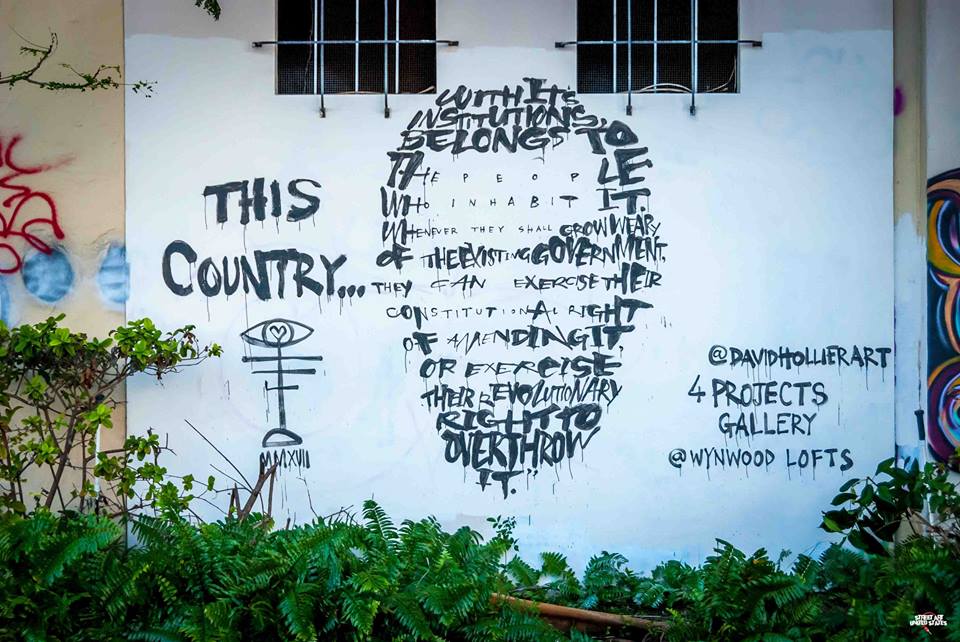 THIS
COUNTRY...
MMXVII
WITH ITS
INSTITUTIONS,
BELONGS TO
THE PEOPLE
WHO INHABIT IT.
WHENEVER THEY SHALL GROW WEARY
OF THE EXISTING GOVERNMENT,
THEY CAN EXERCISE THEIR
CONSTITUTIONAL RIGHT
OF AMENDING IT,
OR EXERCISE
THEIR REVOLUTIONARY
RIGHT TO
OVERTHROW
IT."
@DAVIDHOLLIERART
4 PROJECTS
GALLERY
@WYNWOOD LOFTS
STREET ART
UNITED STATES